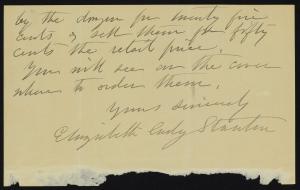 by the dozen for twenty five
cents & sell them for fifty
cents the retail price.
You will see on the cover
where to order them.
Yours sincerely
Elizabeth Cady Stanton